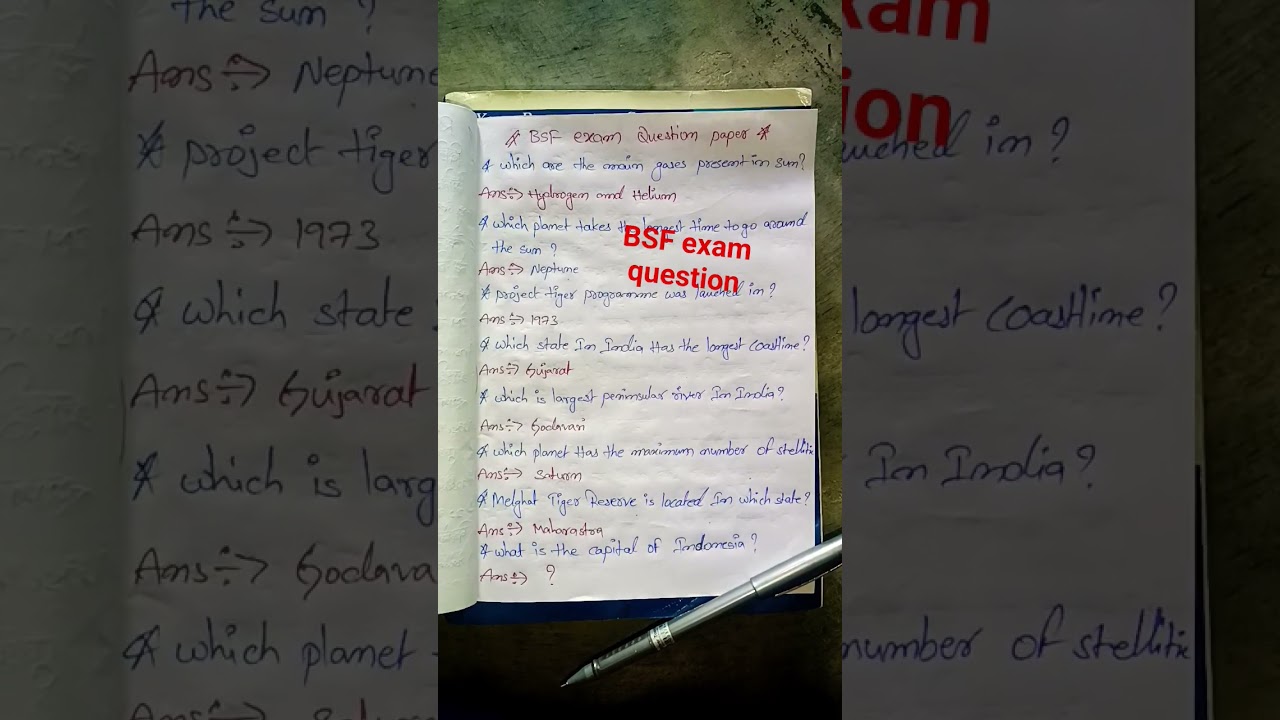 BSF exam Question paper
which are the main gases present in sun?
Ans ⇒ Hydrogen and Helium
which planet takes the longest time to go around
the sun ?
Ans ⇒ Neptune
project tiger programme was lauched in ?
Ans ⇒ 1973
which state In India Has the longest coastline ?
Ans ⇒ Gujarat
which is largest peninsular river In India?
Ans ⇒ Godavari
which planet Has the maximum number of stellite
Ans ⇒ Saturn
Melghat Tiger Reserve is located In which state?
Ans ⇒ Maharastra
what is the capital of Indonesia ?
Ans ⇒ ?
BSF exam
question
the sun ?
Ans ⇒ Neptune
project tiger
Ans ⇒ 1973
which state
Ans ⇒ Gujarat
which is larg
Ans ⇒ Godava
which planet
Ans ⇒
xam
ion
lauched in ?
longest coastline ?
In India?
number of stellite